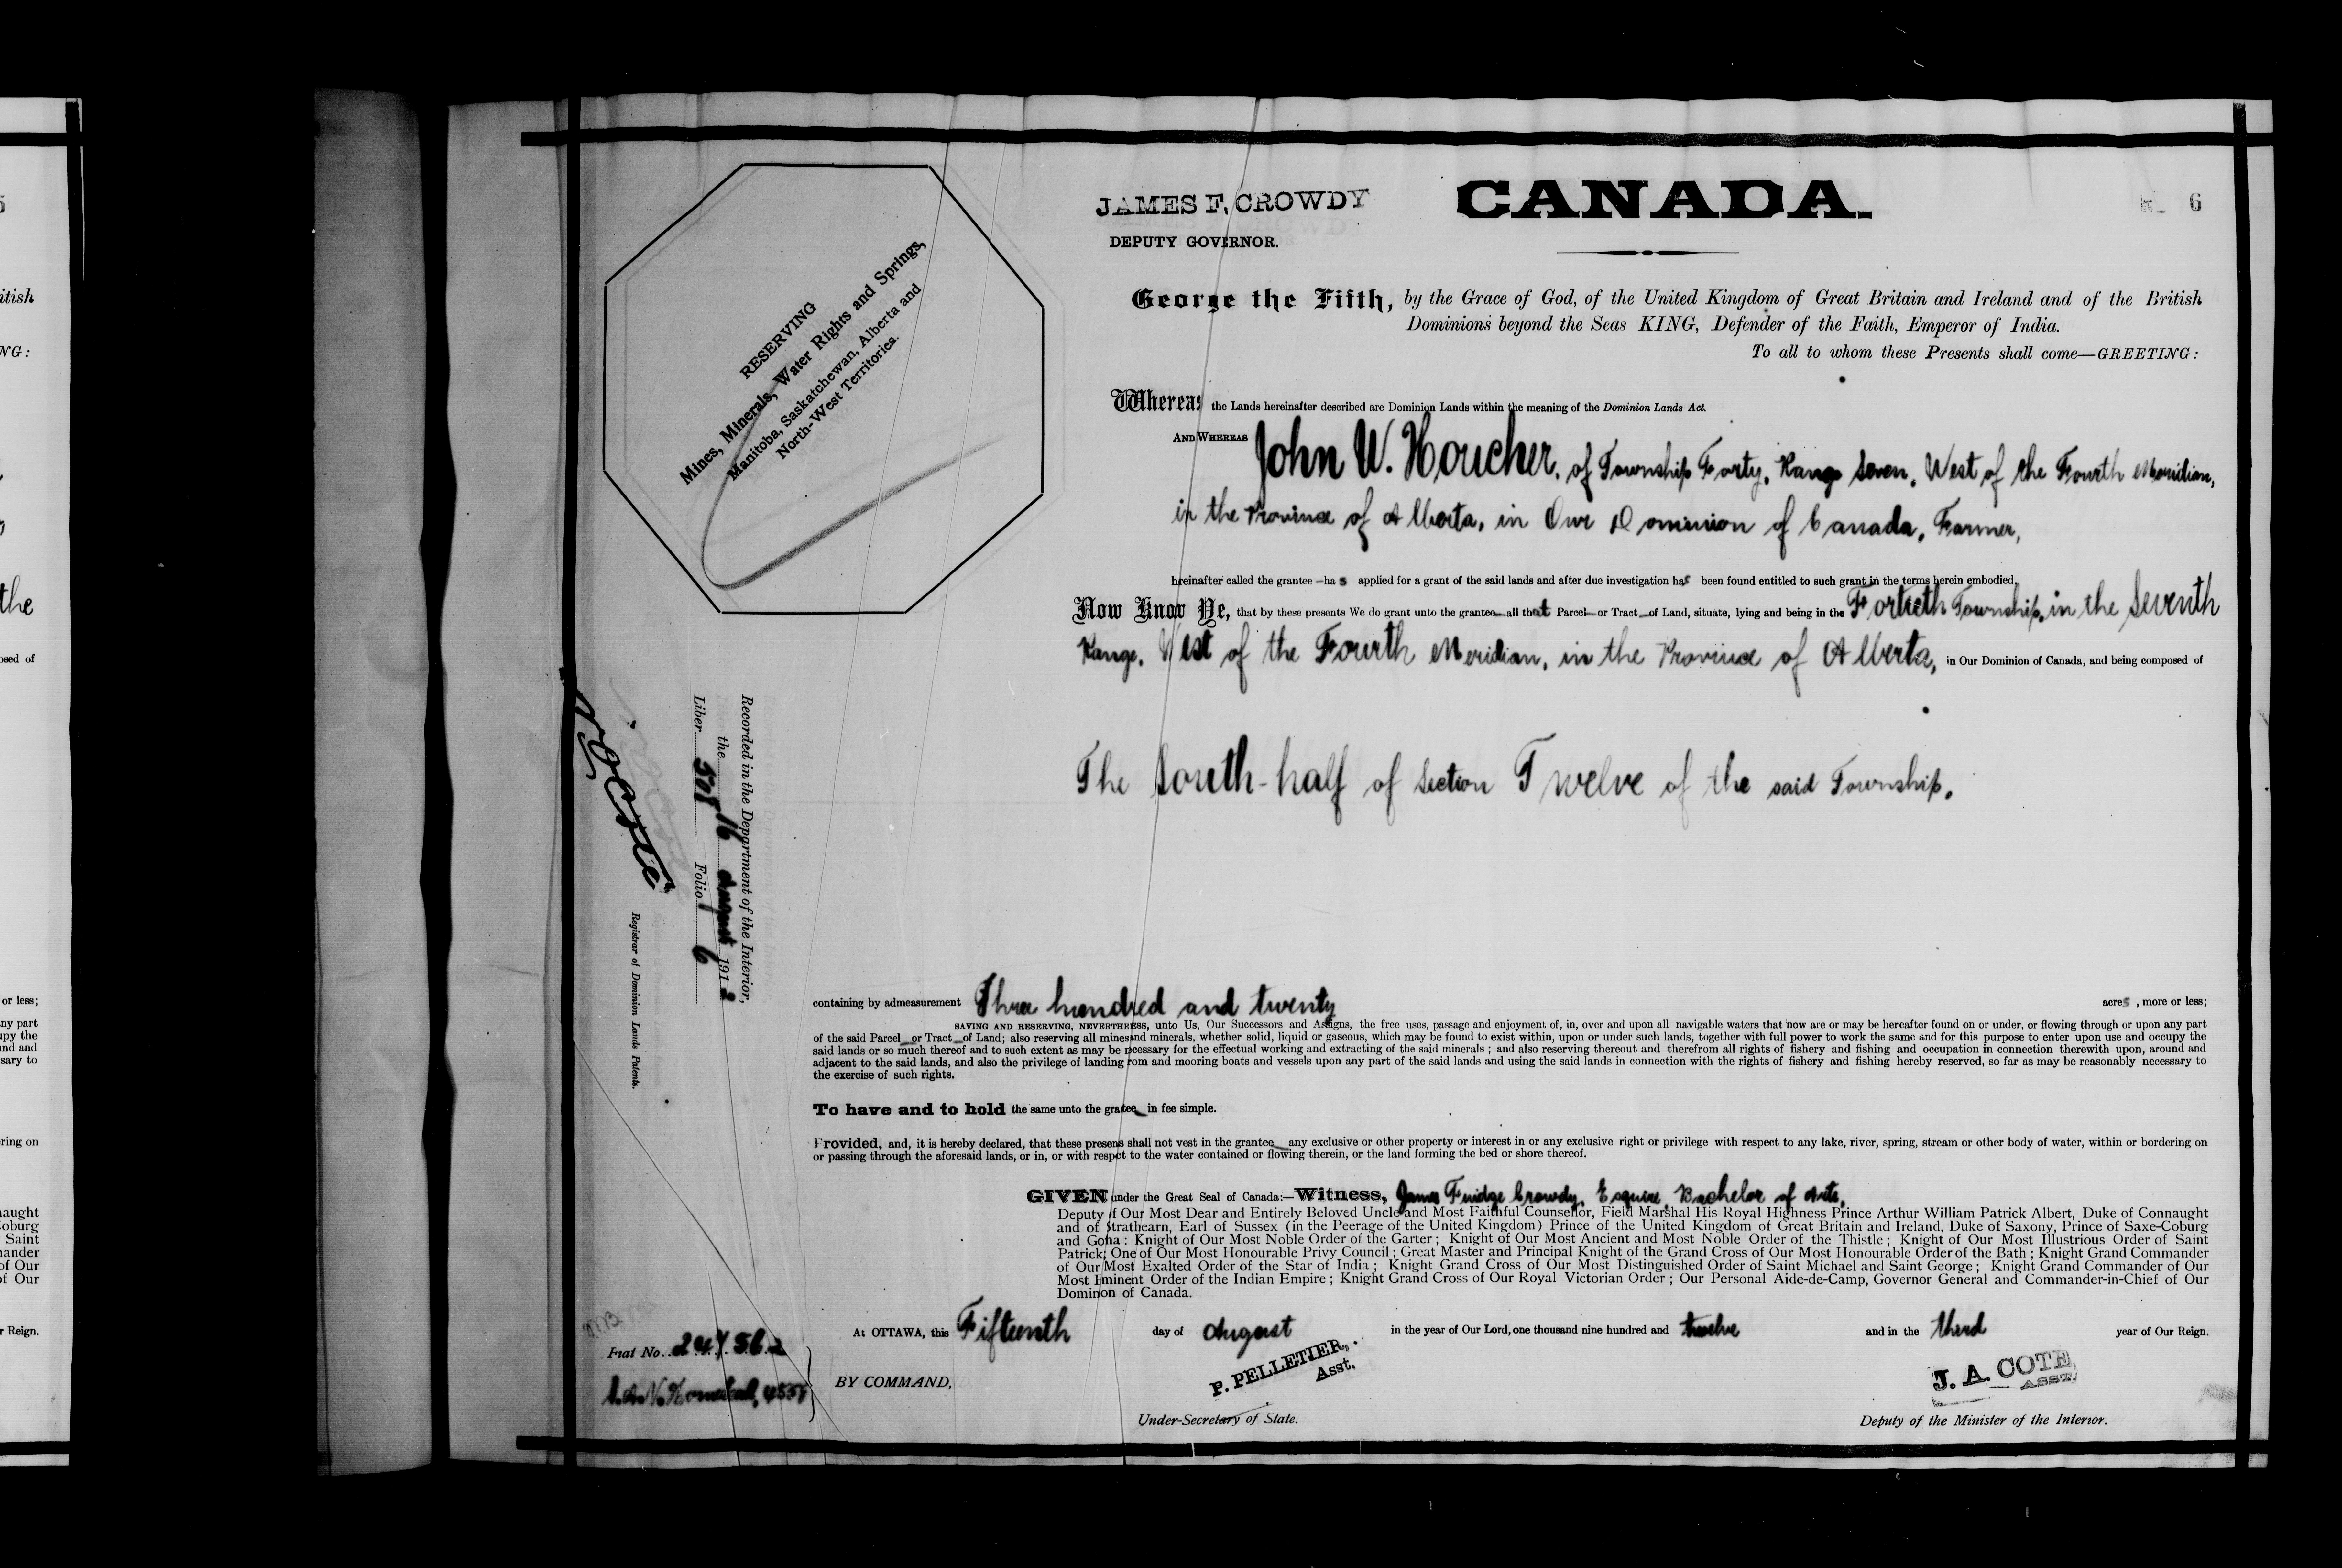 JAMES F. CROWDY
DEPUTY GOVERNOR.
CANADA.
6
RESERVING
Mines, Minerals, Water Rights and Springs,
Manitoba, Saskatchewan, Alberta and
North-West Territories.
George the Fifth, by the Grace of God, of the United Kingdom of Great Britain and Ireland and of the British
Dominions beyond the Seas KING, Defender of the Faith, Emperor of India.
To all to whom these Presents shall come—GREETING:
Whereas the Lands hereinafter described are Dominion Lands within the meaning of the Dominion Lands Act.
AND WHEREAS John W. Houcher, of Township Forty, Range Seven, West of the Fourth Meridian,
in the Province of Alberta, in Our Dominion of Canada, Farmer,
hreinafter called the grantee—ha s applied for a grant of the said lands and after due investigation has been found entitled to such grant in the terms herein embodied,
Now Know Ye, that by these presents We do grant unto the grantee all that Parcel or Tract of Land, situate, lying and being in the Fortieth Township, in the Seventh
Range, West of the Fourth Meridian, in the Province of Alberta, in Our Dominion of Canada, and being composed of
The South-half of Section Twelve of the said Township.
Recorded in the Department of the Interior,
the 16 August 1912
Liber Folio 6
Registrar of Dominion Lands Patents.
containing by admeasurement Three hundred and twenty acres, more or less;
SAVING AND RESERVING, NEVERTHELESS, unto Us, Our Successors and Assigns, the free uses, passage and enjoyment of, in, over and upon all navigable waters that now are or may be hereafter found on or under, or flowing through or upon any part
of the said Parcel or Tract of Land; also reserving all mines and minerals, whether solid, liquid or gaseous, which may be found to exist within, upon or under such lands, together with full power to work the same and for this purpose to enter upon use and occupy the
said lands or so much thereof and to such extent as may be necessary for the effectual working and extracting of the said minerals; and also reserving thereout and therefrom all rights of fishery and fishing and occupation in connection therewith upon, around and
adjacent to the said lands, and also the privilege of landing from and mooring boats and vessels upon any part of the said lands and using the said lands in connection with the rights of fishery and fishing hereby reserved, so far as may be reasonably necessary to
the exercise of such rights.
To have and to hold the same unto the grantee in fee simple.
Provided, and, it is hereby declared, that these presents shall not vest in the grantee any exclusive or other property or interest in or any exclusive right or privilege with respect to any lake, river, spring, stream or other body of water, within or bordering on
or passing through the aforesaid lands, or in, or with respect to the water contained or flowing therein, or the land forming the bed or shore thereof.
GIVEN under the Great Seal of Canada:—Witness, James Fuidge Crowdy, Esquire, Bachelor of Arts,
Deputy of Our Most Dear and Entirely Beloved Uncle and Most Faithful Counsellor, Field Marshal His Royal Highness Prince Arthur William Patrick Albert, Duke of Connaught
and of Strathearn, Earl of Sussex (in the Peerage of the United Kingdom) Prince of the United Kingdom of Great Britain and Ireland, Duke of Saxony, Prince of Saxe-Coburg
and Gotha: Knight of Our Most Noble Order of the Garter; Knight of Our Most Ancient and Most Noble Order of the Thistle; Knight of Our Most Illustrious Order of Saint
Patrick; One of Our Most Honourable Privy Council; Great Master and Principal Knight of the Grand Cross of Our Most Honourable Order of the Bath; Knight Grand Commander
of Our Most Exalted Order of the Star of India; Knight Grand Cross of Our Most Distinguished Order of Saint Michael and Saint George; Knight Grand Commander of Our
Most Eminent Order of the Indian Empire; Knight Grand Cross of Our Royal Victorian Order; Our Personal Aide-de-Camp, Governor General and Commander-in-Chief of Our
Dominon of Canada.
At OTTAWA, this Fifteenth day of August in the year of Our Lord, one thousand nine hundred and twelve and in the third year of Our Reign.
Fiat No. 247562
BY COMMAND,
P. PELLETIER,
Asst.
Under-Secretary of State.
J. A. COTE
ASST.
Deputy of the Minister of the Interior.